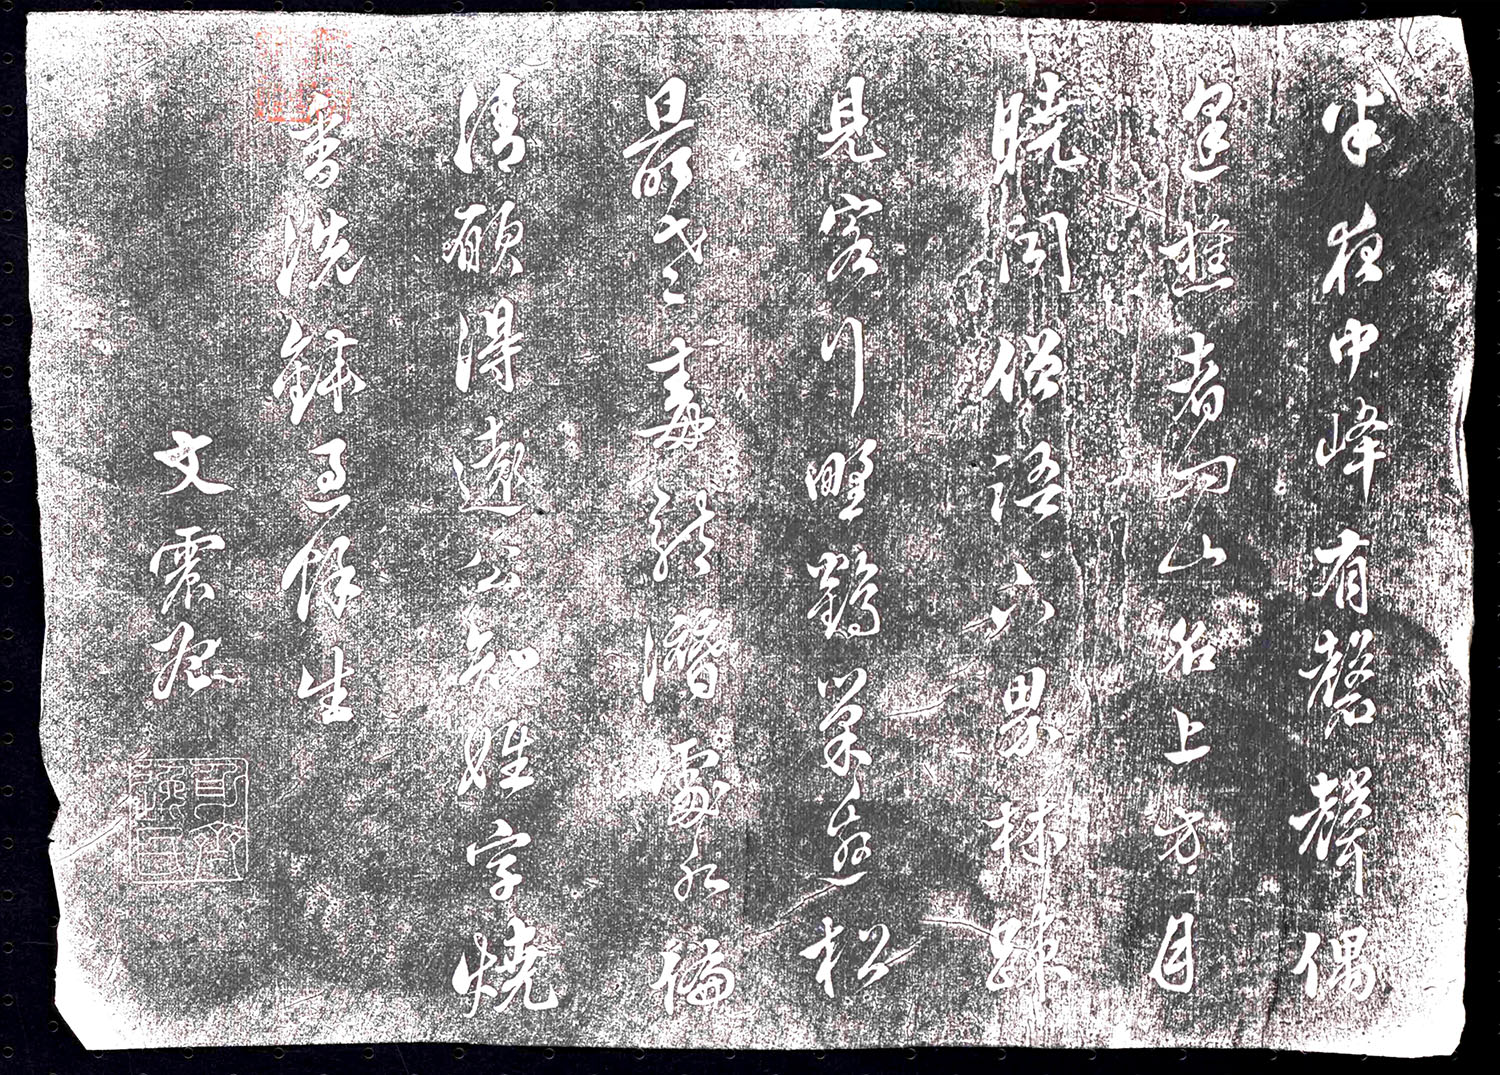 半夜中峰有磬聲偶
逢樵者問山名上方月
曉聞僧語下界林疎
見客行野鶴巢邊松
最老毒龍潛處水偏
清願得遠公知姓字燒
香洗鉢過餘生
文震孟